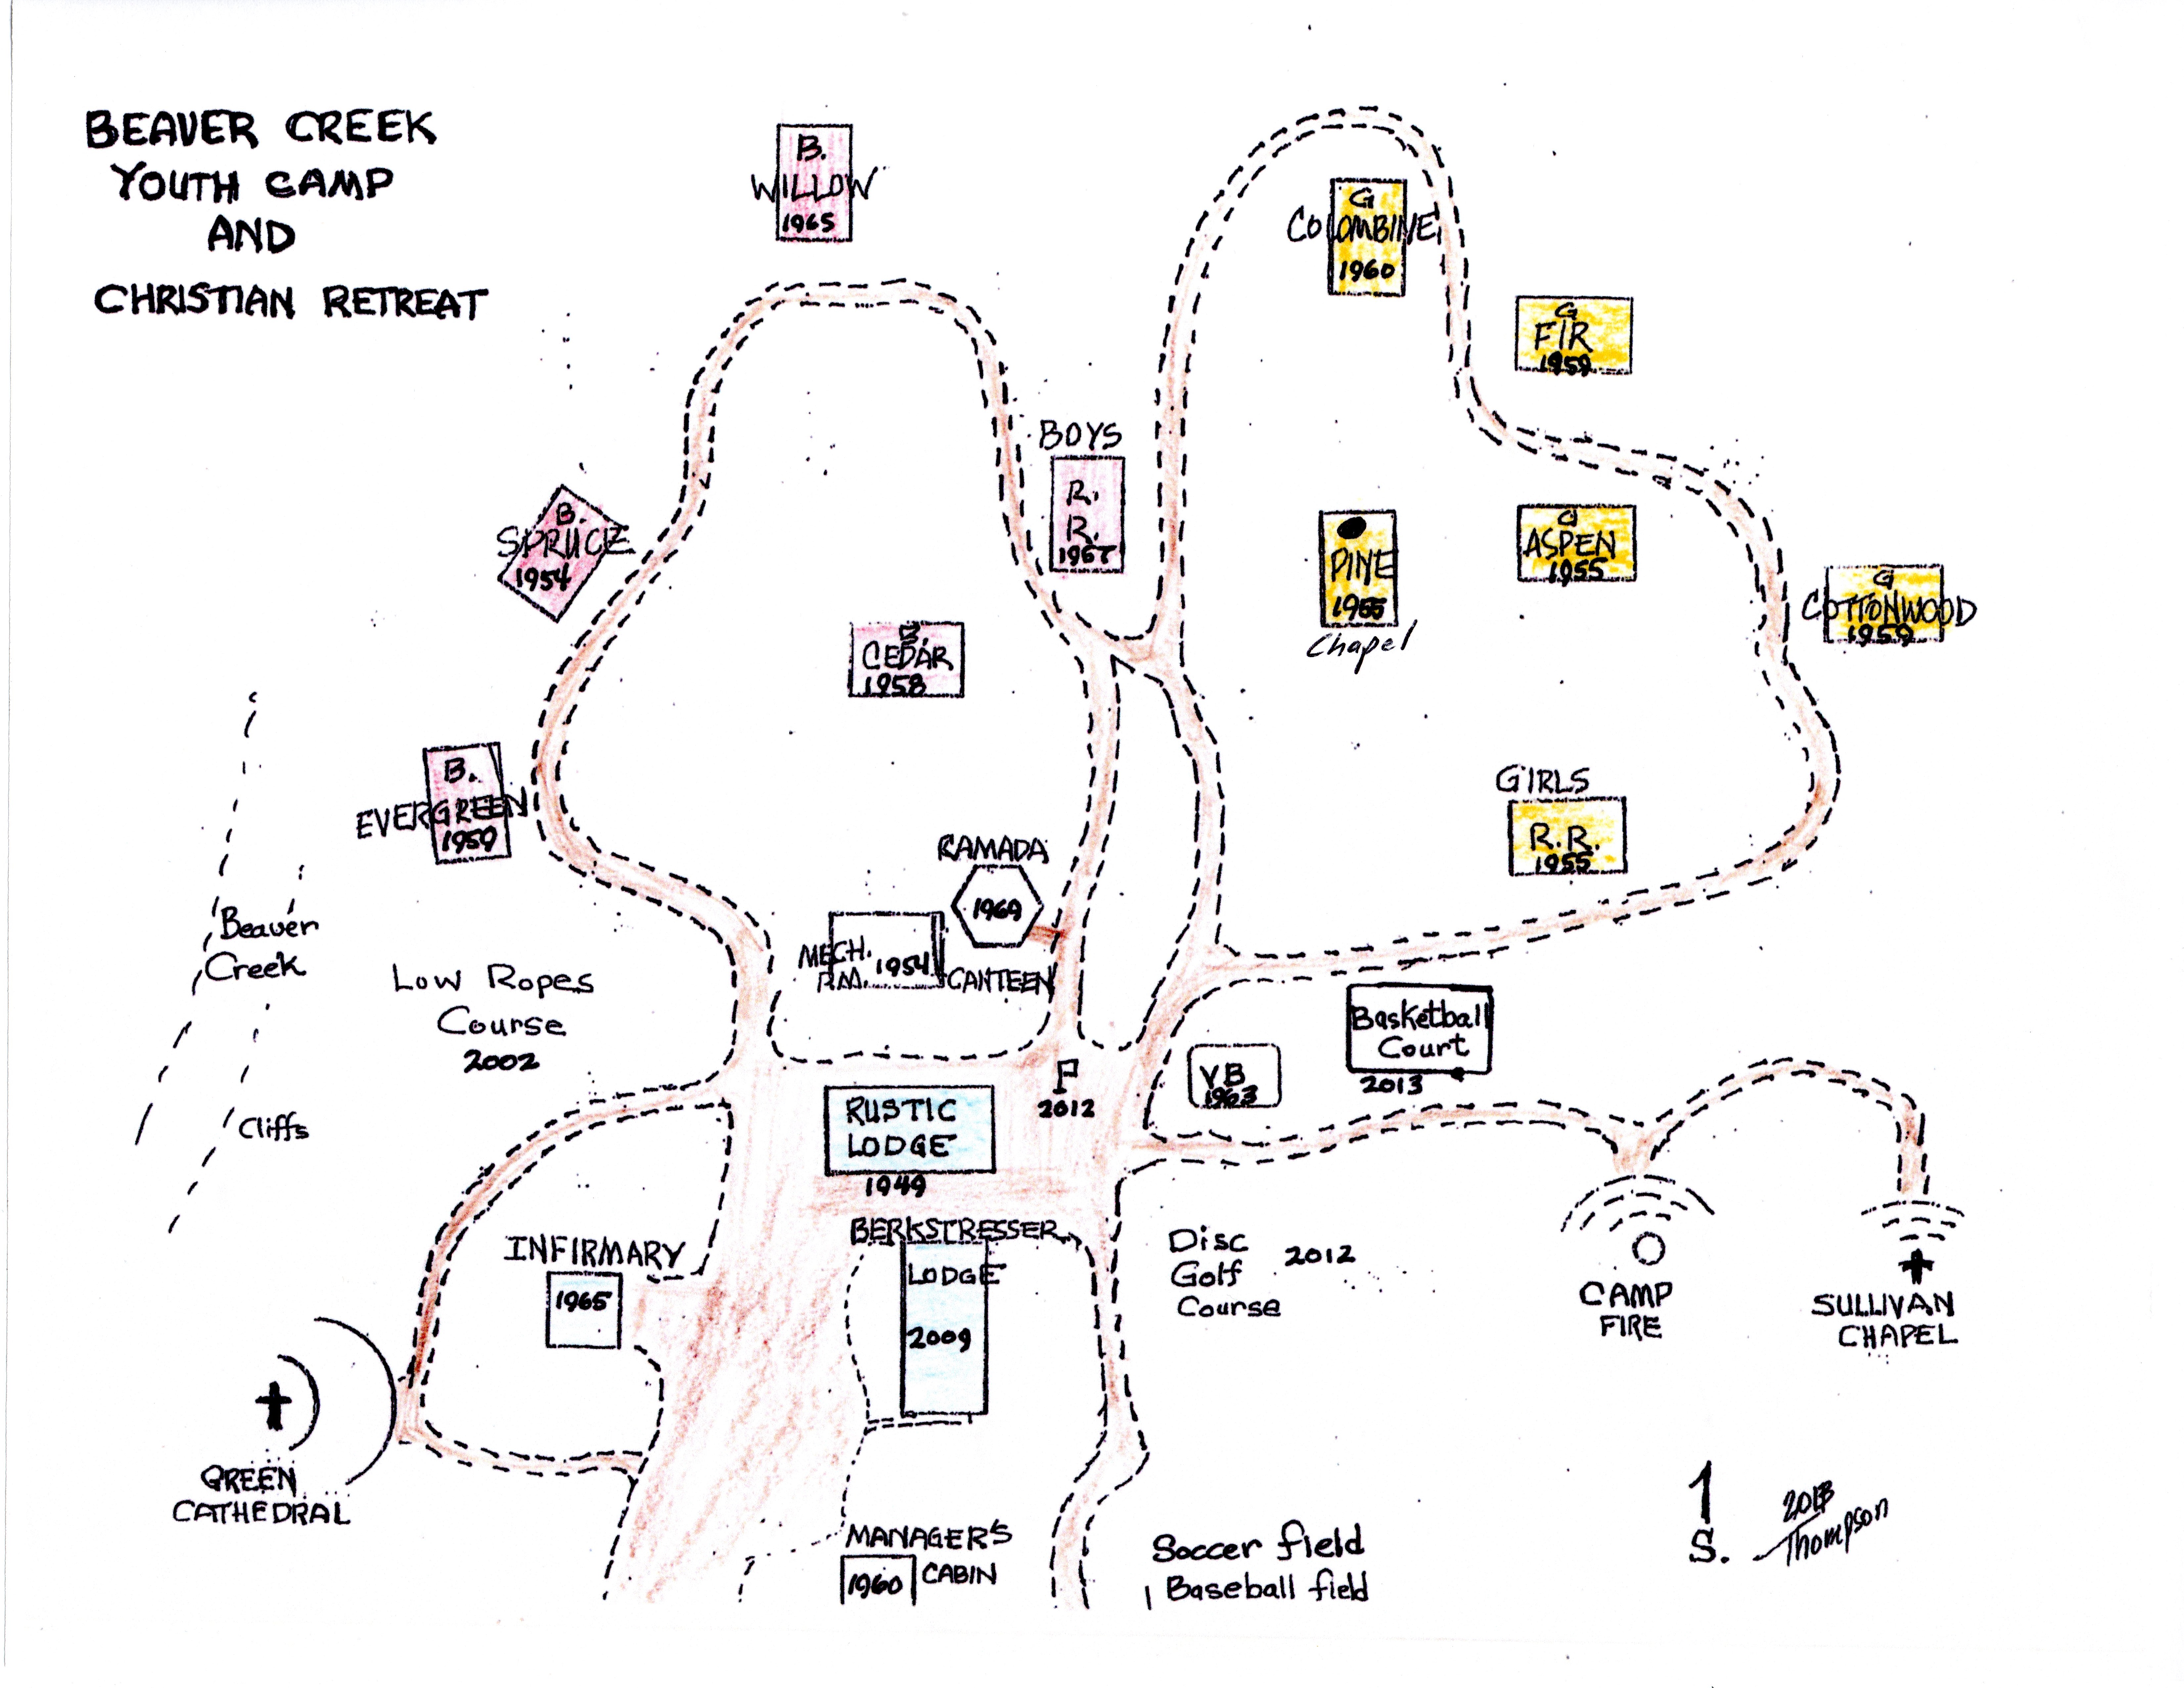 BEAVER CREEK
YOUTH CAMP
AND
CHRISTIAN RETREAT
B.
WILLOW
1965
G
COLOMBINE
1960
G
FIR
1959
BOYS
R.
R.
1967
B.
SPRUCE
1954
PINE
1955
Chapel
G
ASPEN
1955
G
COTTONWOOD
1959
B.
CEDAR
1958
B.
EVERGREEN
1959
GIRLS
R.R.
1955
RAMADA
1969
MECH.
RM.
1954
CANTEEN
Beaver
Creek
Low Ropes
Course
2002
Cliffs
Basketball
Court
2013
VB
1963
P
2012
RUSTIC
LODGE
1949
BERKSTRESSER
LODGE
2009
INFIRMARY
1965
Disc
Golf
Course
2012
CAMP
FIRE
SULLIVAN
CHAPEL
GREEN
CATHEDRAL
MANAGER'S
CABIN
1960
Soccer field
Baseball field
S.
2013
Thompson